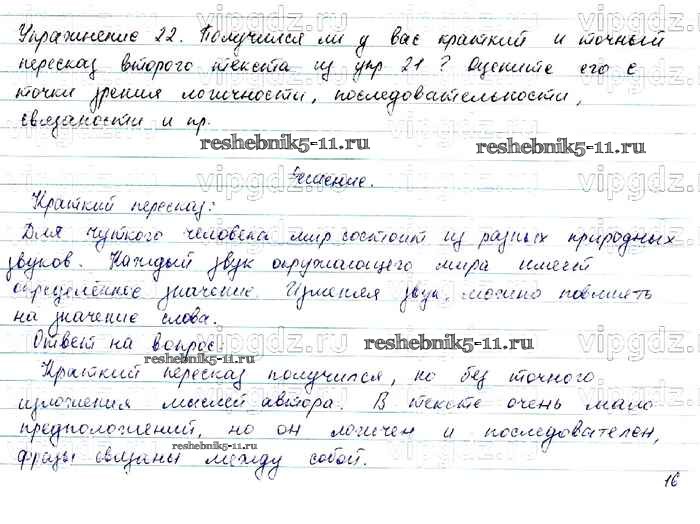 Упражнение 22. Получился ли у вас краткий и точный
пересказ второго текста из упр 21? Оцените его с
точки зрения логичности, последовательности,
связаности и пр.
reshebnik5-11.ru
reshebnik5-11.ru
Решение.
Краткий пересказ:
Для чуткого человека мир состоит из разных природных
звуков. Каждый звук окружающего мира имеет
определённое значение. Изменяя звук, можно повлиять
на значение слова.
Ответ на вопрос.
reshebnik5-11.ru
reshebnik5-11.ru
Краткий пересказ получился, но без точного
изложения мыслей автора. В тексте очень мало
предположений, но он логичен и последователен,
reshebnik5-11.ru
фразы связаны между собой.
16
vipgdz.ru